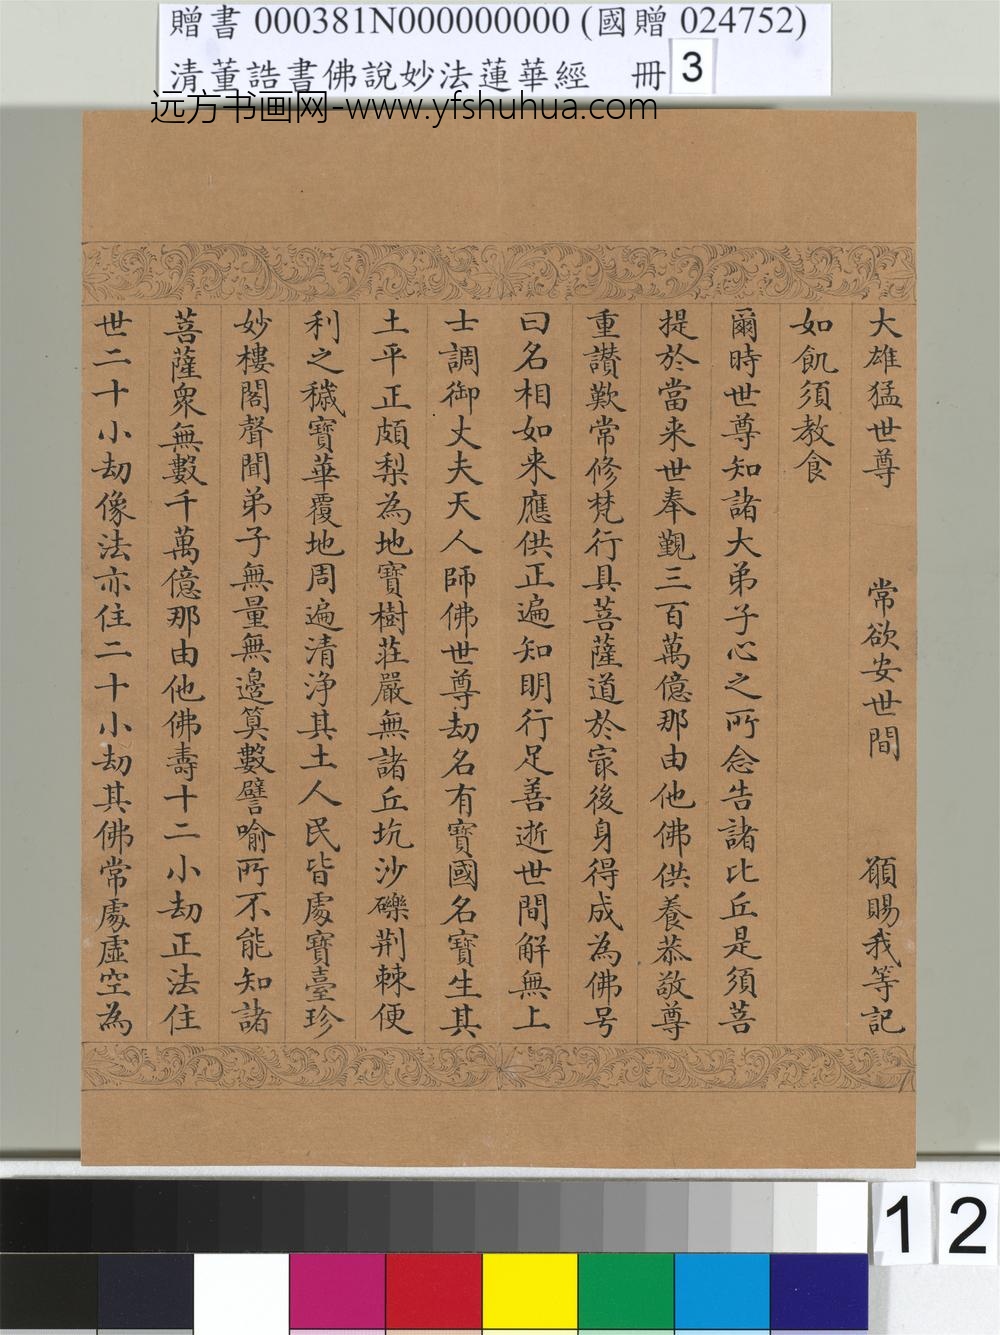 贈書 000381N000000000 (國贈 024752)
清董誥書佛說妙法蓮華經 冊 3
远方书画网-www.yfshuhua.com
大雄猛世尊 常欲安世間 願賜我等記
如飢須教食
爾時世尊知諸大弟子心之所念告諸比丘是須菩
提於當来世奉覲三百萬億那由他佛供養恭敬尊
重讃歎常修梵行具菩薩道於㝡後身得成為佛号
曰名相如来應供正遍知明行足善逝世間解無上
士調御丈夫天人師佛世尊劫名有寶國名寶生其
土平正頗梨為地寶樹莊嚴無諸丘坑沙礫荆棘便
利之穢寶華覆地周遍清淨其土人民皆處寶臺珍
妙樓閣聲聞弟子無量無邊筭數譬喻所不能知諸
菩薩衆無數千萬億那由他佛壽十二小劫正法住
世二十小劫像法亦住二十小劫其佛常處虛空為
12